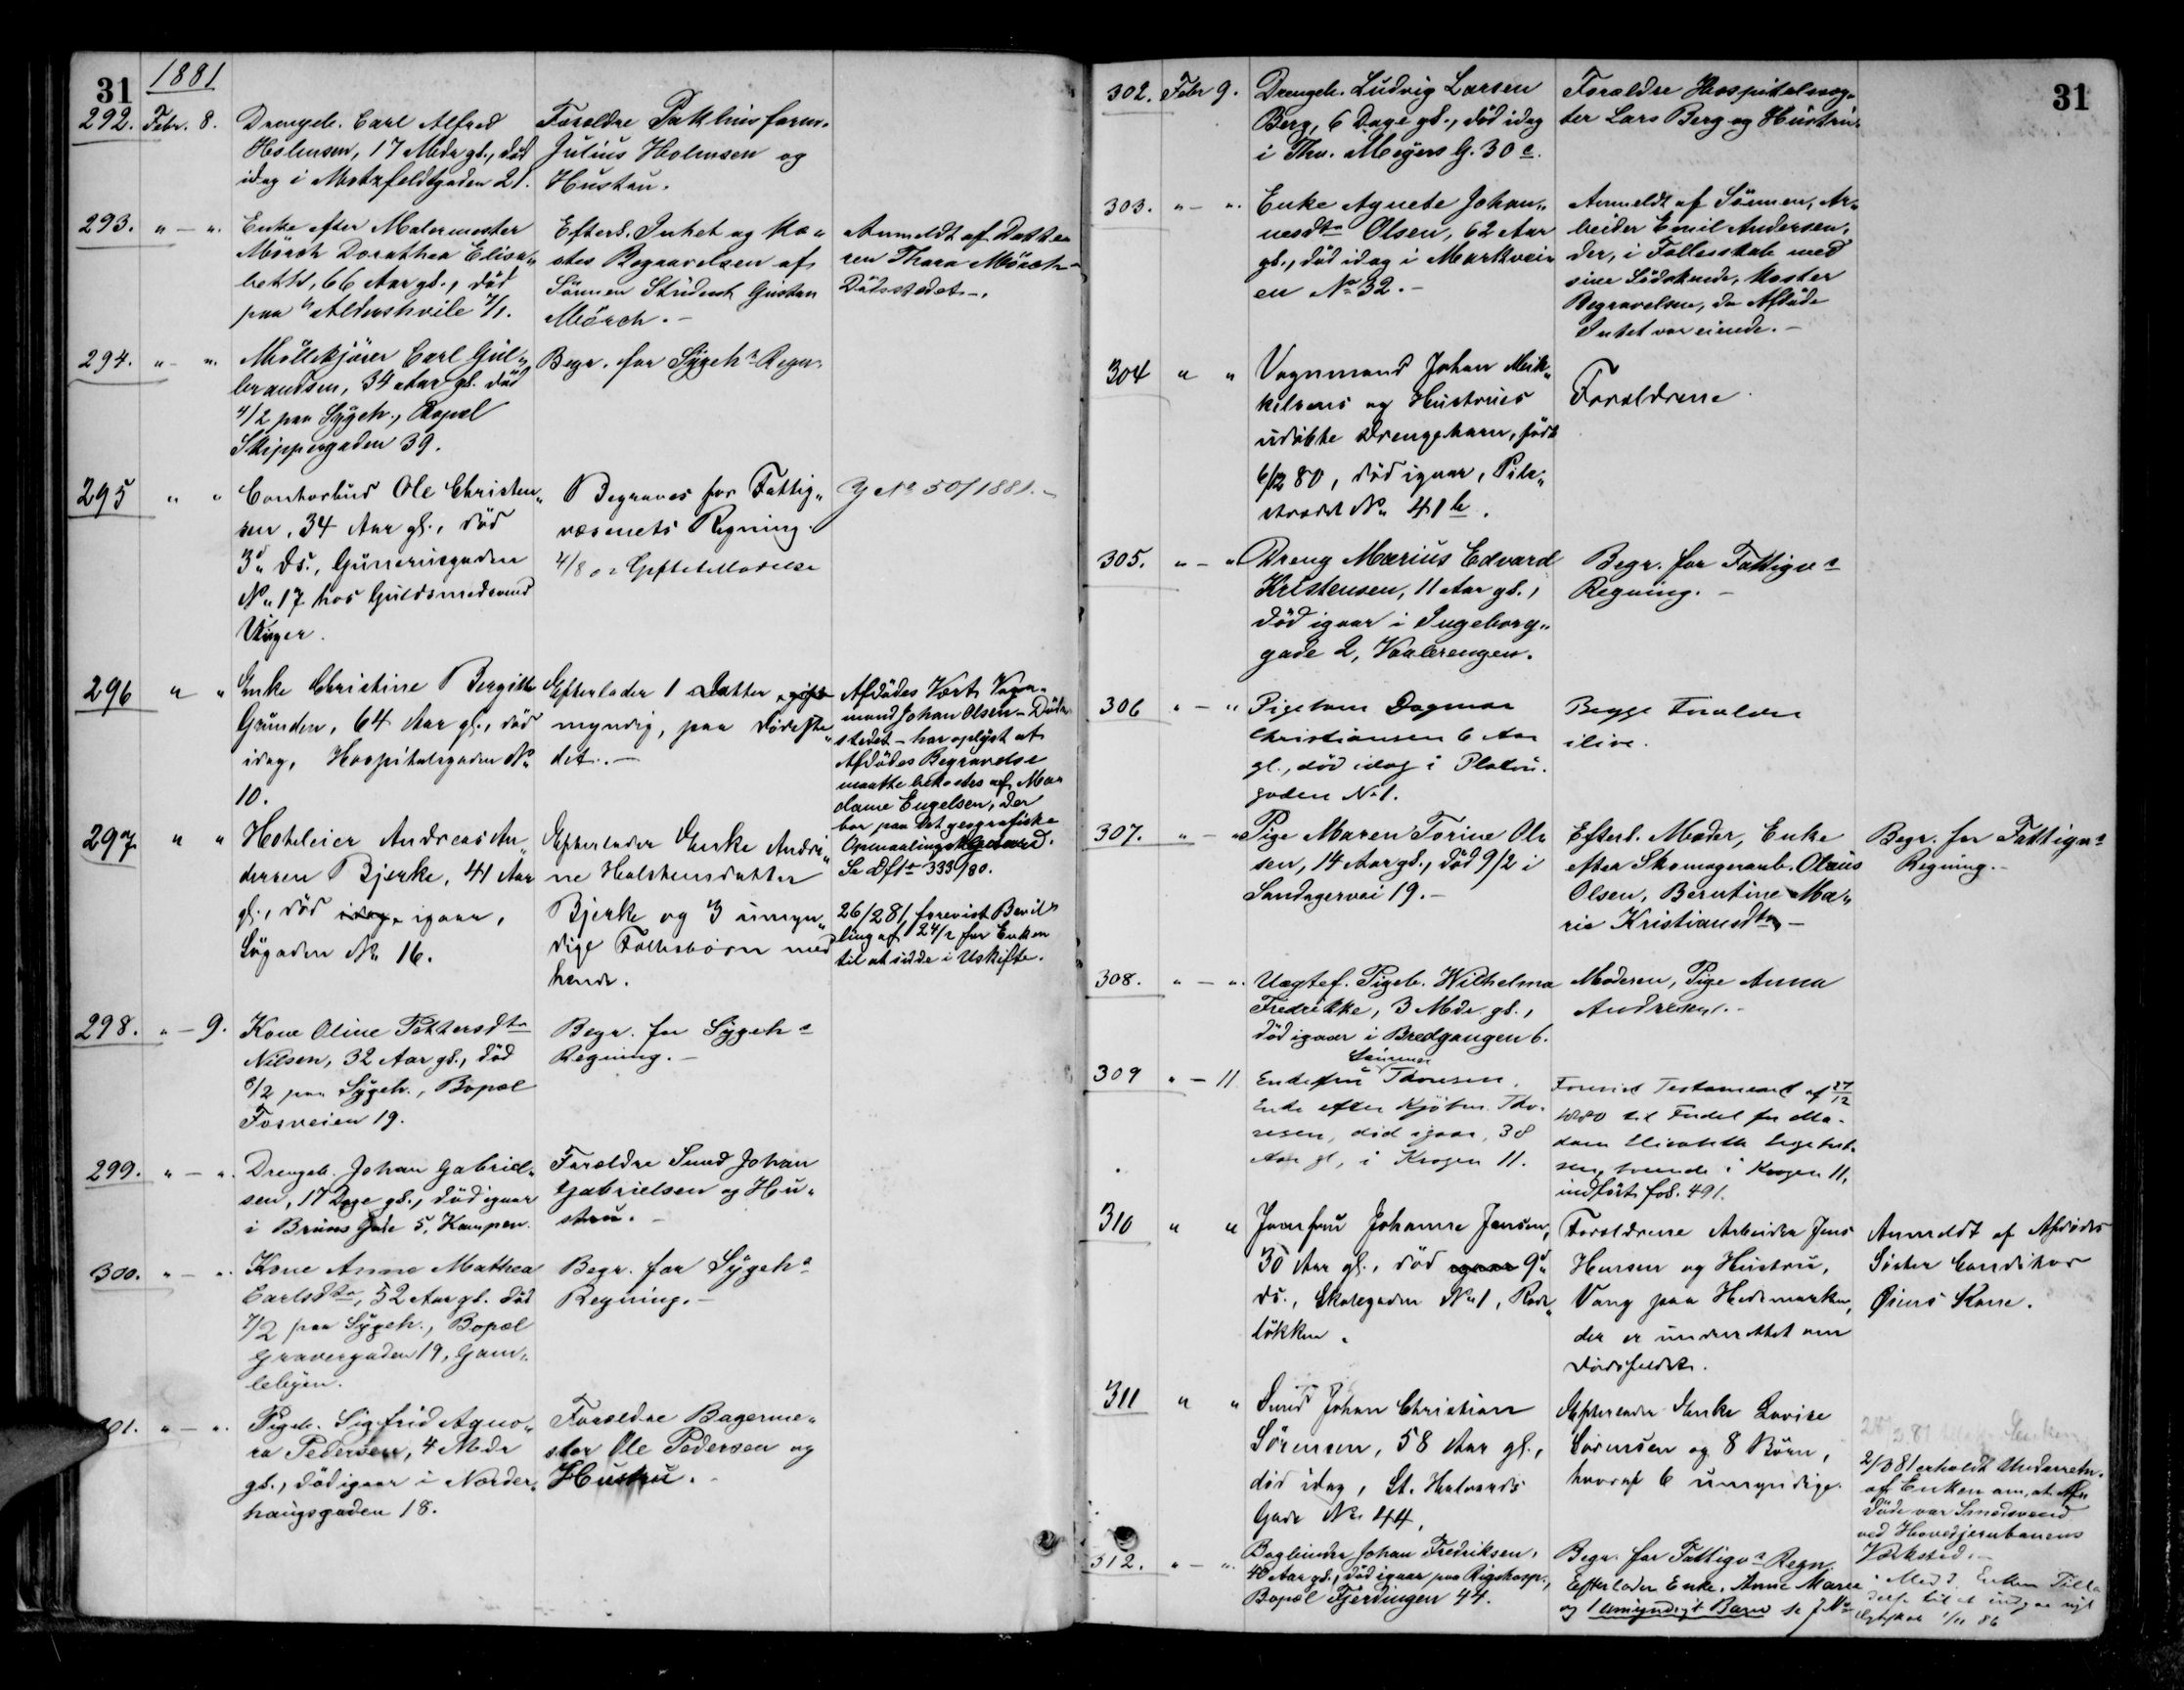 31
1881
292. Febr. 8.
Drengeb. Carl Alfred
Holmsen, 17 Mdr gl., død
idag i Motzfeldtgaden 21.
Forældre Pakhusform.
Julius Holmsen og
Hustru.
293. " — ".
Enke efter Malermester
Mörch Dorathea Elisa„
beth, 66 Aar gl., död
paa "Aldershvile
Efterl. Intet og Ko„
stes Begravelsen af
Sönnen Student Gustav
Mörch. —
Anmeldt af Datte
ren Thora Mörch —
Dödsstedet —.
294. " — ".
Möllekjörer Carl Gul„
brandsen, 34 Aar gl. död
4/2 paa Sygeh., Bopæl
Skippergaden 39.
Begr. for Sygehs Regn.
295 " "
Contorbud Ole Christen„
sen, 34 Aar gl., död
3d ds., Gunerusgaden
No 17 hos Guldsmedsvend
Unger.
Begraves for Fattig„
væsenets Regning.
J No 50/1881. —
296 " "
Enke Christine Bergitte
Grunden, 64 Aar gl., död
idag, Hospitalsgaden No
10.
Efterlader 1 Datter gift
myndig, paa Dödsste„
det. —
Afdödes Vært, Vogn„
mand Johan Olsen — Döds
stedet — har oplyst at
Afdödes Begravelse
maatte bekostes af Ma„
dame Engelsen, der
bor paa Det geografiske
Opmaalings
Se Dfto 333/80.
297. " "
Hoteleier Andreas An„
dersen Bjerke, 41 Aar
gl., död idag, igaar,
Søgaden No 16.
Efterlader Enke Andri„
ne Halstensdatter
Bjerke og 3 umyn„
dige Fællesbörn med
hende.
26/2 81, forevist Bevil„
ling af 24/2 for Enken
til at sidde i Uskifte.
298. " — 9.
Kone Oline Pettersdtr
Nilsen, 32 Aar gl., död
8/2 paa Sygeh., Bopæl
Fosveien 19.
Begr. for Sygehs
Regning. —
299. " — ".
Drengeb. Johan Gabriel„
sen, 17 Dage gl., död igaar
i Bruns Gade 5, Kampen.
Forældre Smed Johan
Gabrielsen og Hu„
stru. —
300. " — ".
Kone Anne Mathea
Carlsdtr, 52 Aar gl. död
7/2 paa Sygeh., Bopæl
Gravergaden 19, Gam„
lebyen.
Begr. for Sygehs
Regning. —
301. " — ".
Pigeb. Sigfrid Agno„
ra Pedersen, 4 Mdr
gl., död igaar i Norder„
haugsgaden 18.
Forældre Bagerme„
ster Ole Pedersen og
Hustru. —
31
302. Febr 9.
Drengeb. Ludvig Larsen
Berg, 6 Dage gl., död idag
i Thv. Meyers G. 30 c.
Forældre Hospitalsvog„
ter Lars Berg og Hustru.
303. " — ".
Enke Agnete Johan„
nesdtr Olsen, 62 Aar
gl., död idag i Markvei„
en No 32. —
Anmeldt af Sönnen, Ar„
beider Emil Andersen,
der, i Fællesskab med
sine Södskende, koster
Begravelsen, da Afdöde
Intet var eiende. —
304 " "
Vognmand Johan Mik„
kelsens og Hustrues
udöbte Drengebarn, födt
6/12 80, död igaar, Pile„
strædet No 41 b.
Forældrene.
305. " — "
Dreng Marius Edvard
Kristensen, 11 Aar gl.,
död igaar i Ingeborg„
gade 2, Vaalerengen.
Begr. for Fattigvs
Regning. —
306 " — "
Pigebarn Dagmar
Christiansen 6 Aar
gl., död idag i Platou„
gaden No 1.
Begge Forældre
ilive.
307. " — "
Pige Maren Torine Ol„
sen, 14 Aar gl., död 9/2 i
Sandagervei 19. —
Efterl. Moder, Enke
efter Skomagerarb. Olaus
Olsen, Berntine Ma„
rie Kristiansdtr —
Begr. for Fattigvs
Regning. —
308. " — ".
Uægtef. Pigeb. Wilhelma
Fredrikke, 3 Mdr gl.,
död igaar i Bredgangen 6.
Moderen, Pige Anna
Andresen. —
309 " — 11.
Enkefru Thoresen.
Enke efter Kjøbm. Tho„
resen, död igaar, 38
Aar gl., i Krogen 11.
Forevist Testament af 27/12
1880 til Fordel for Ma„
dam Elisabeth
boende i Krogen 11,
indfört fol. 491.
310 " "
Jomfru Johanne Jensen,
30 Aar gl., död igaar 9d
ds., Skolegaden No 1, Rode„
lökken.
Forældrene Arbeider Jens
Hansen og Hustru,
Vang paa Hedemarken,
der er underrettet om
Dödsfaldet.
Anmeldt af Afdödes
Söster Conditor
Kone.
311 " "
Smed Johan Christian
Sörensen, 58 Aar gl.,
död idag, St. Halvards
Gade No 44,
Efterlader Enke Lovise
Sörensen og 8 Börn,
hvoraf 6 umyndige.
2/3 81 erholdt Underretn.
af Enken om, at Af„
döde var Smedsvend
ved Hovedjernbanens
Værksted. —
312. " — "
Bogbinder Johan Fredriksen,
40 Aar gl., död igaar paa Rigshosp.,
Bopæl Fjerdingen 44.
Begr. for Fattigvs Regn.
Efterlader Enke, Anne Marie
og 1 umyndigt Barn se J No
Enken Tilla
delse til at indgaa nyt
Egteskab 1/11 86